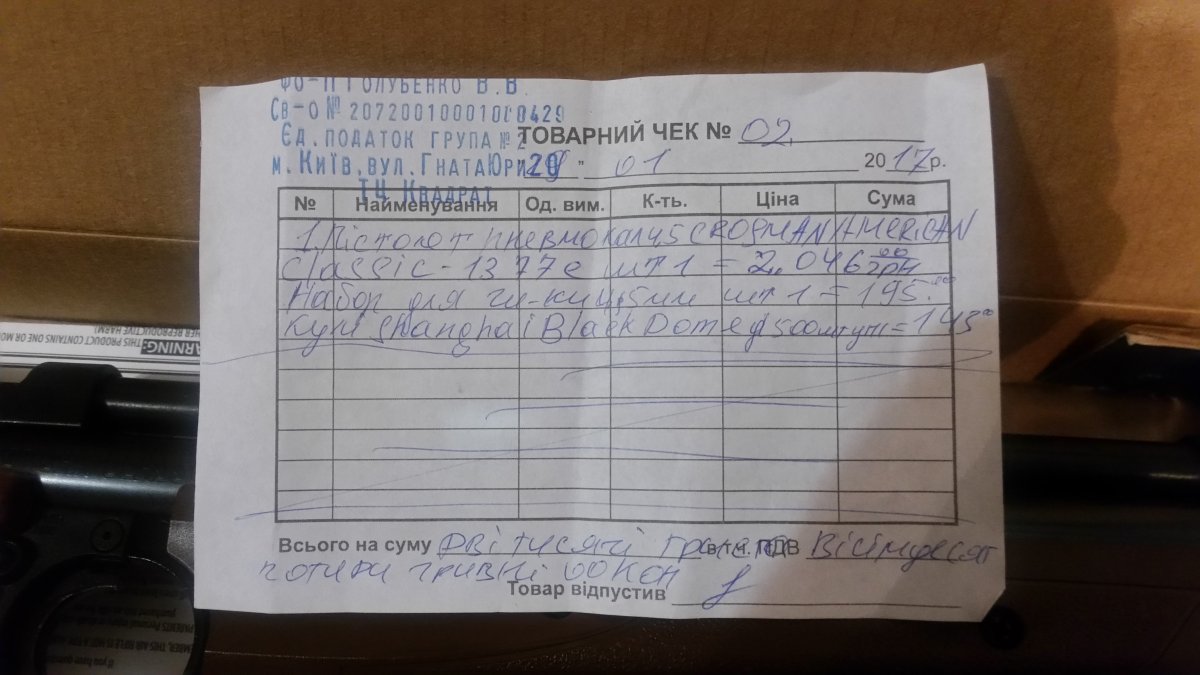 ФО-П ГОЛУБЕНКО В.В.
Св-о № 20720010001000429
ЄД. ПОДАТОК ГРУПА № 2
м. Київ, вул. Гната Юри, 20
ТЦ Квадрат
ТОВАРНИЙ ЧЕК № 02
01 2017 р.
№ Найменування Од. вим. К-ть. Ціна Сума
1. Пістолет пневмо кал 4,5 CROSMAN AMERICAN
Classic - 1377с шт 1 = 2.046 00 грн
Набор для чи-ки 4,5мм шт 1 = 195.00
Кулі Shanghai Black Dome 500шт = 143 00
Всього на суму Дві тисячі триста в т.ч. ПДВ Вісімдесят
чотири гривні 00 коп
Товар відпустив
WARNING:
THIS PRODUCT CONTAINS ONE OR MO
HER REPRODUCTIVE HARM)